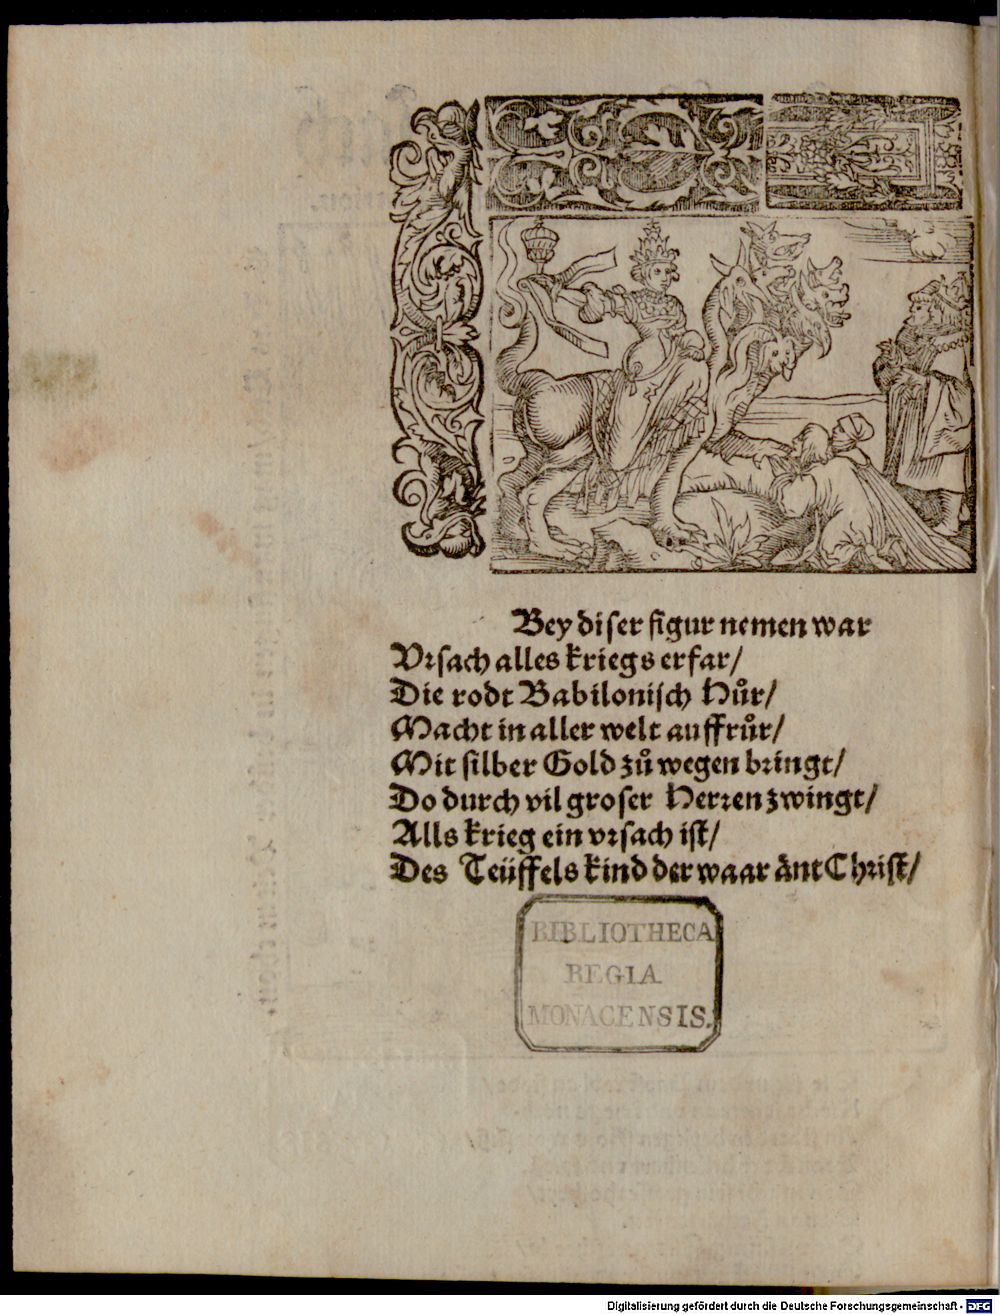 Bey diser figur nemen war
Vrsach alles kriegs erfar/
Die rodt Babilonisch Hůr/
Macht in aller welt auffrůr/
Mit silber Gold zů wegen bringt/
Do durch vil groser Herren zwingt/
Alls krieg ein vrsach ist/
Des Teüffels kind der waar änt Christ/
BIBLIOTHECA
REGIA
MONACENSIS.
Digitalisierung gefördert durch die Deutsche Forschungsgemeinschaft - DFG